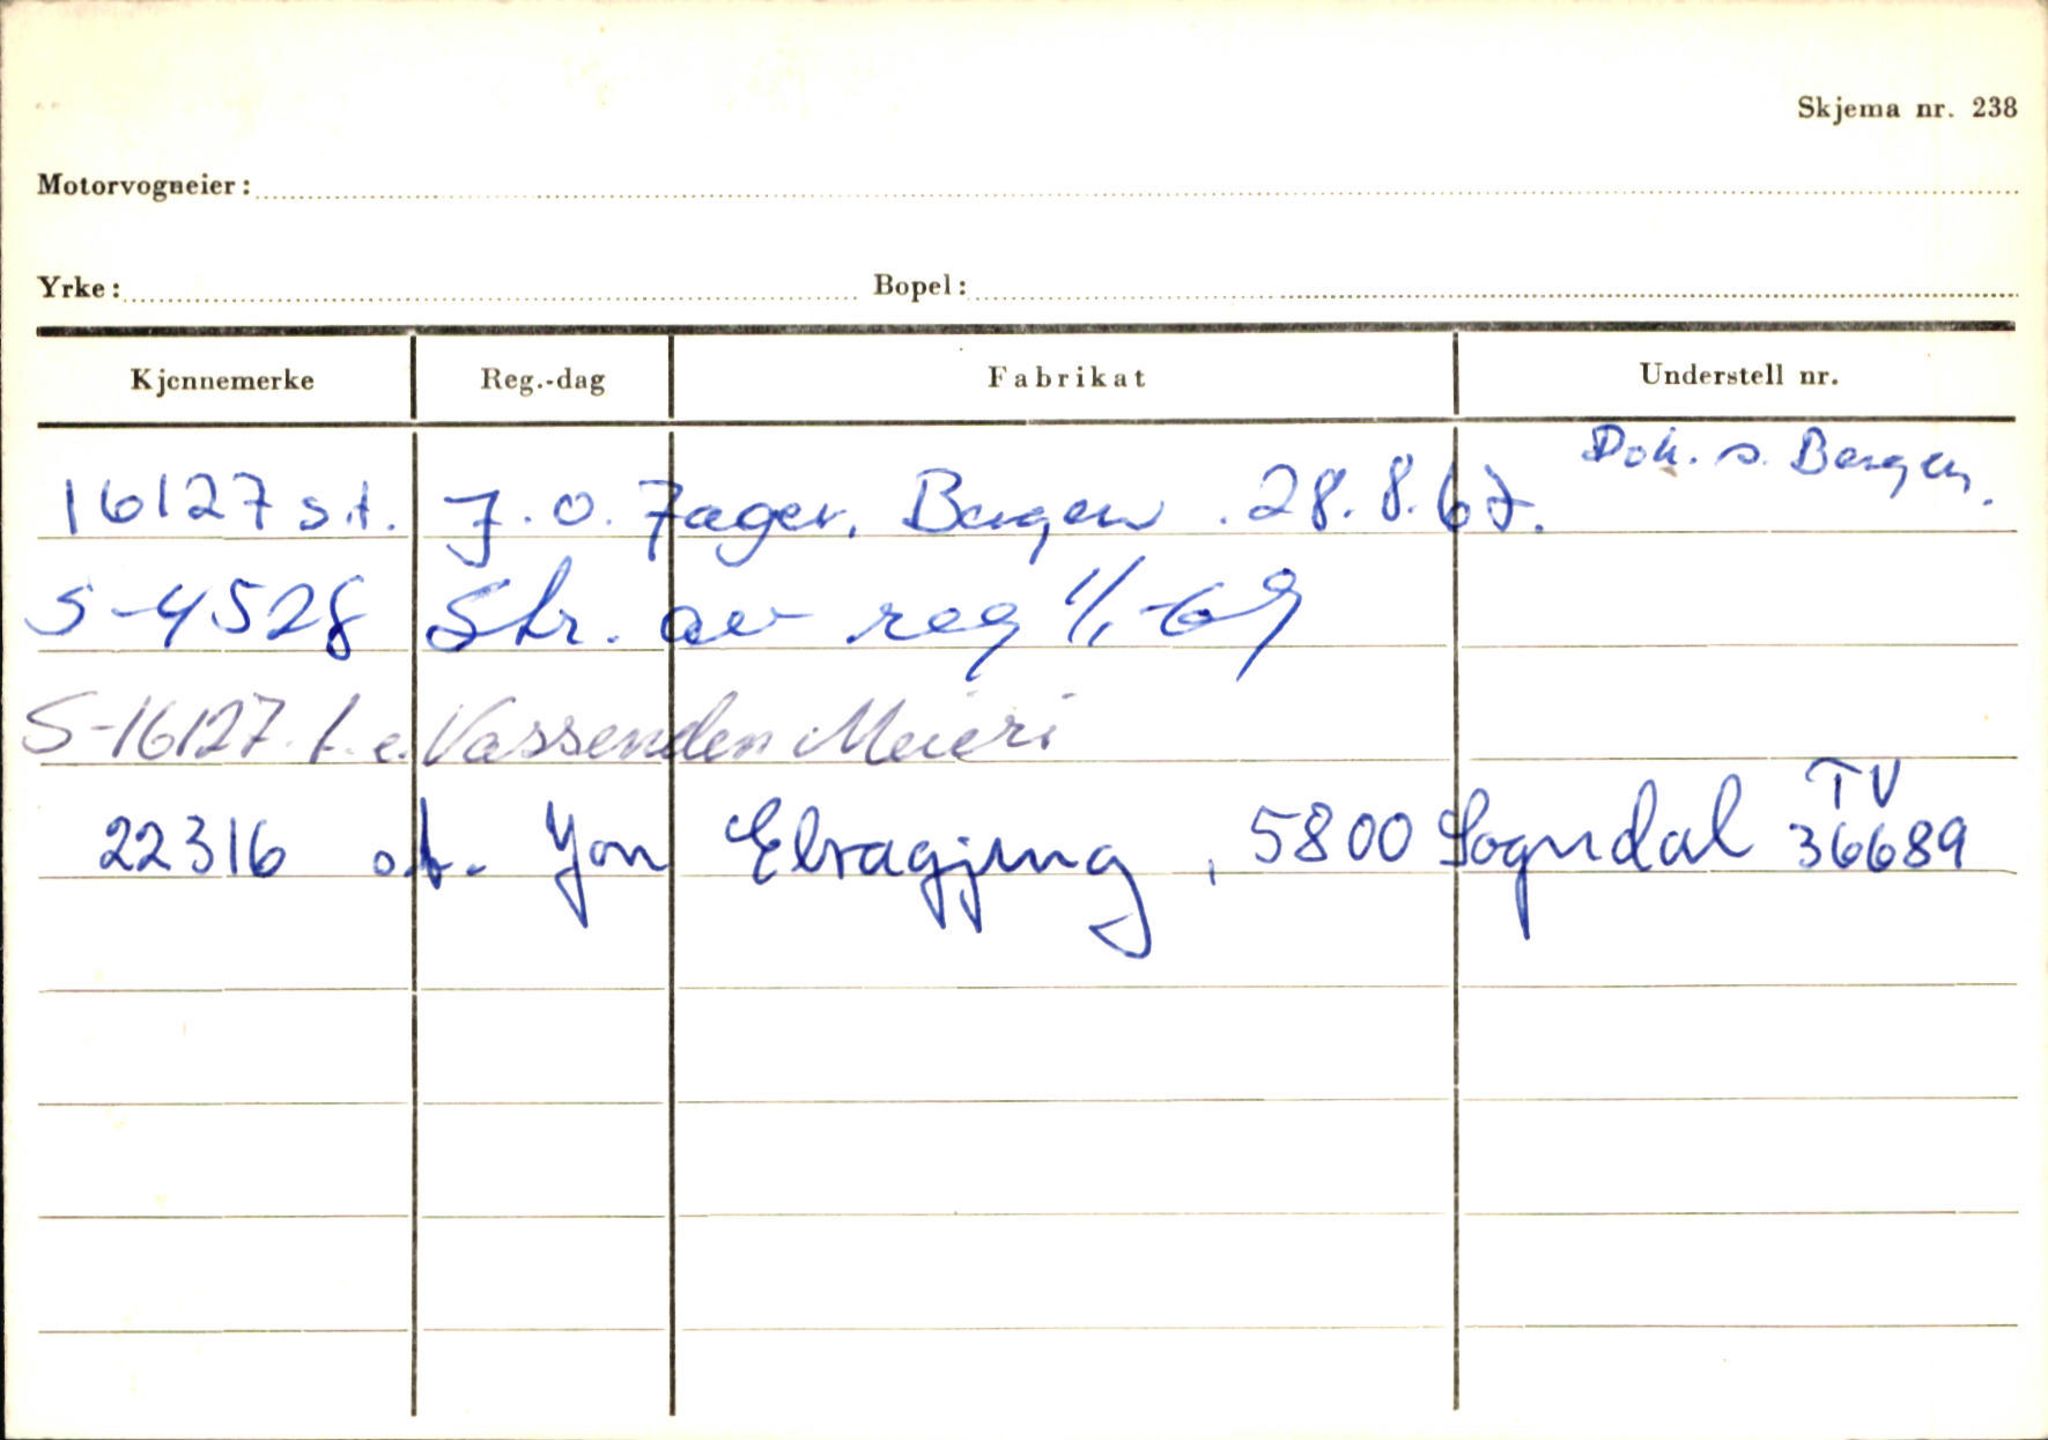 Skjema nr. 238
Motorvogneier:
Yrke: Bopel:
Kjennemerke Reg.-dag Fabrikat Understell nr.
Dok. s. Bergen.
16127 s.t. J. O. Jager, Bergen. 28.8.67.
S-4528 Str. av reg 1/1-69
S-16127. t. e. Vassenden Meieri
TV
22316 o.t. Jon Elvagjung, 5800 Sogndal 36689